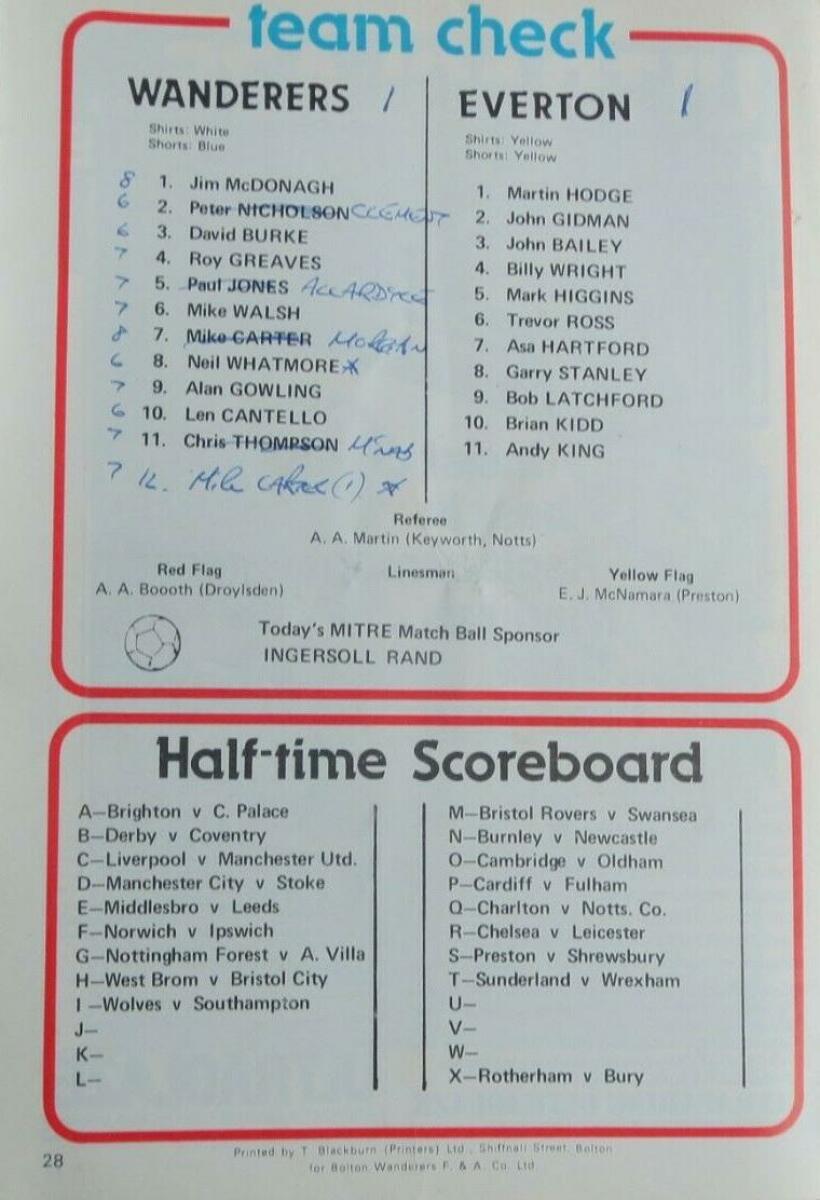 team check
WANDERERS 1
Shirts: White
Shorts: Blue
8 1. Jim McDONAGH
6 2. Peter NICHOLSON CLEMENT
6 3. David BURKE
7 4. Roy GREAVES
7 5. Paul JONES
7 6. Mike WALSH
8 7. Mike CARTER MORGAN
6 8. Neil WHATMORE
7 9. Alan GOWLING
6 10. Len CANTELLO
7 11. Chris THOMPSON
7 12. Mike CARTER (1)
EVERTON 1
Shirts: Yellow
Shorts: Yellow
1. Martin HODGE
2. John GIDMAN
3. John BAILEY
4. Billy WRIGHT
5. Mark HIGGINS
6. Trevor ROSS
7. Asa HARTFORD
8. Garry STANLEY
9. Bob LATCHFORD
10. Brian KIDD
11. Andy KING
Referee
A. A. Martin (Keyworth, Notts)
Red Flag Linesman Yellow Flag
A. A. Boooth (Droylsden) E. J. McNamara (Preston)
Today's MITRE Match Ball Sponsor
INGERSOLL RAND
Half-time Scoreboard
A—Brighton v C. Palace
B—Derby v Coventry
C—Liverpool v Manchester Utd.
D—Manchester City v Stoke
E—Middlesbro v Leeds
F—Norwich v Ipswich
G—Nottingham Forest v A. Villa
H—West Brom v Bristol City
I—Wolves v Southampton
J—
K—
L—
M—Bristol Rovers v Swansea
N—Burnley v Newcastle
O—Cambridge v Oldham
P—Cardiff v Fulham
Q—Charlton v Notts. Co.
R—Chelsea v Leicester
S—Preston v Shrewsbury
T—Sunderland v Wrexham
U—
V—
W—
X—Rotherham v Bury
28
Printed by T. Blackburn (Printers) Ltd., Shiffnall Street, Bolton
for Bolton Wanderers F. & A. Co. Ltd.